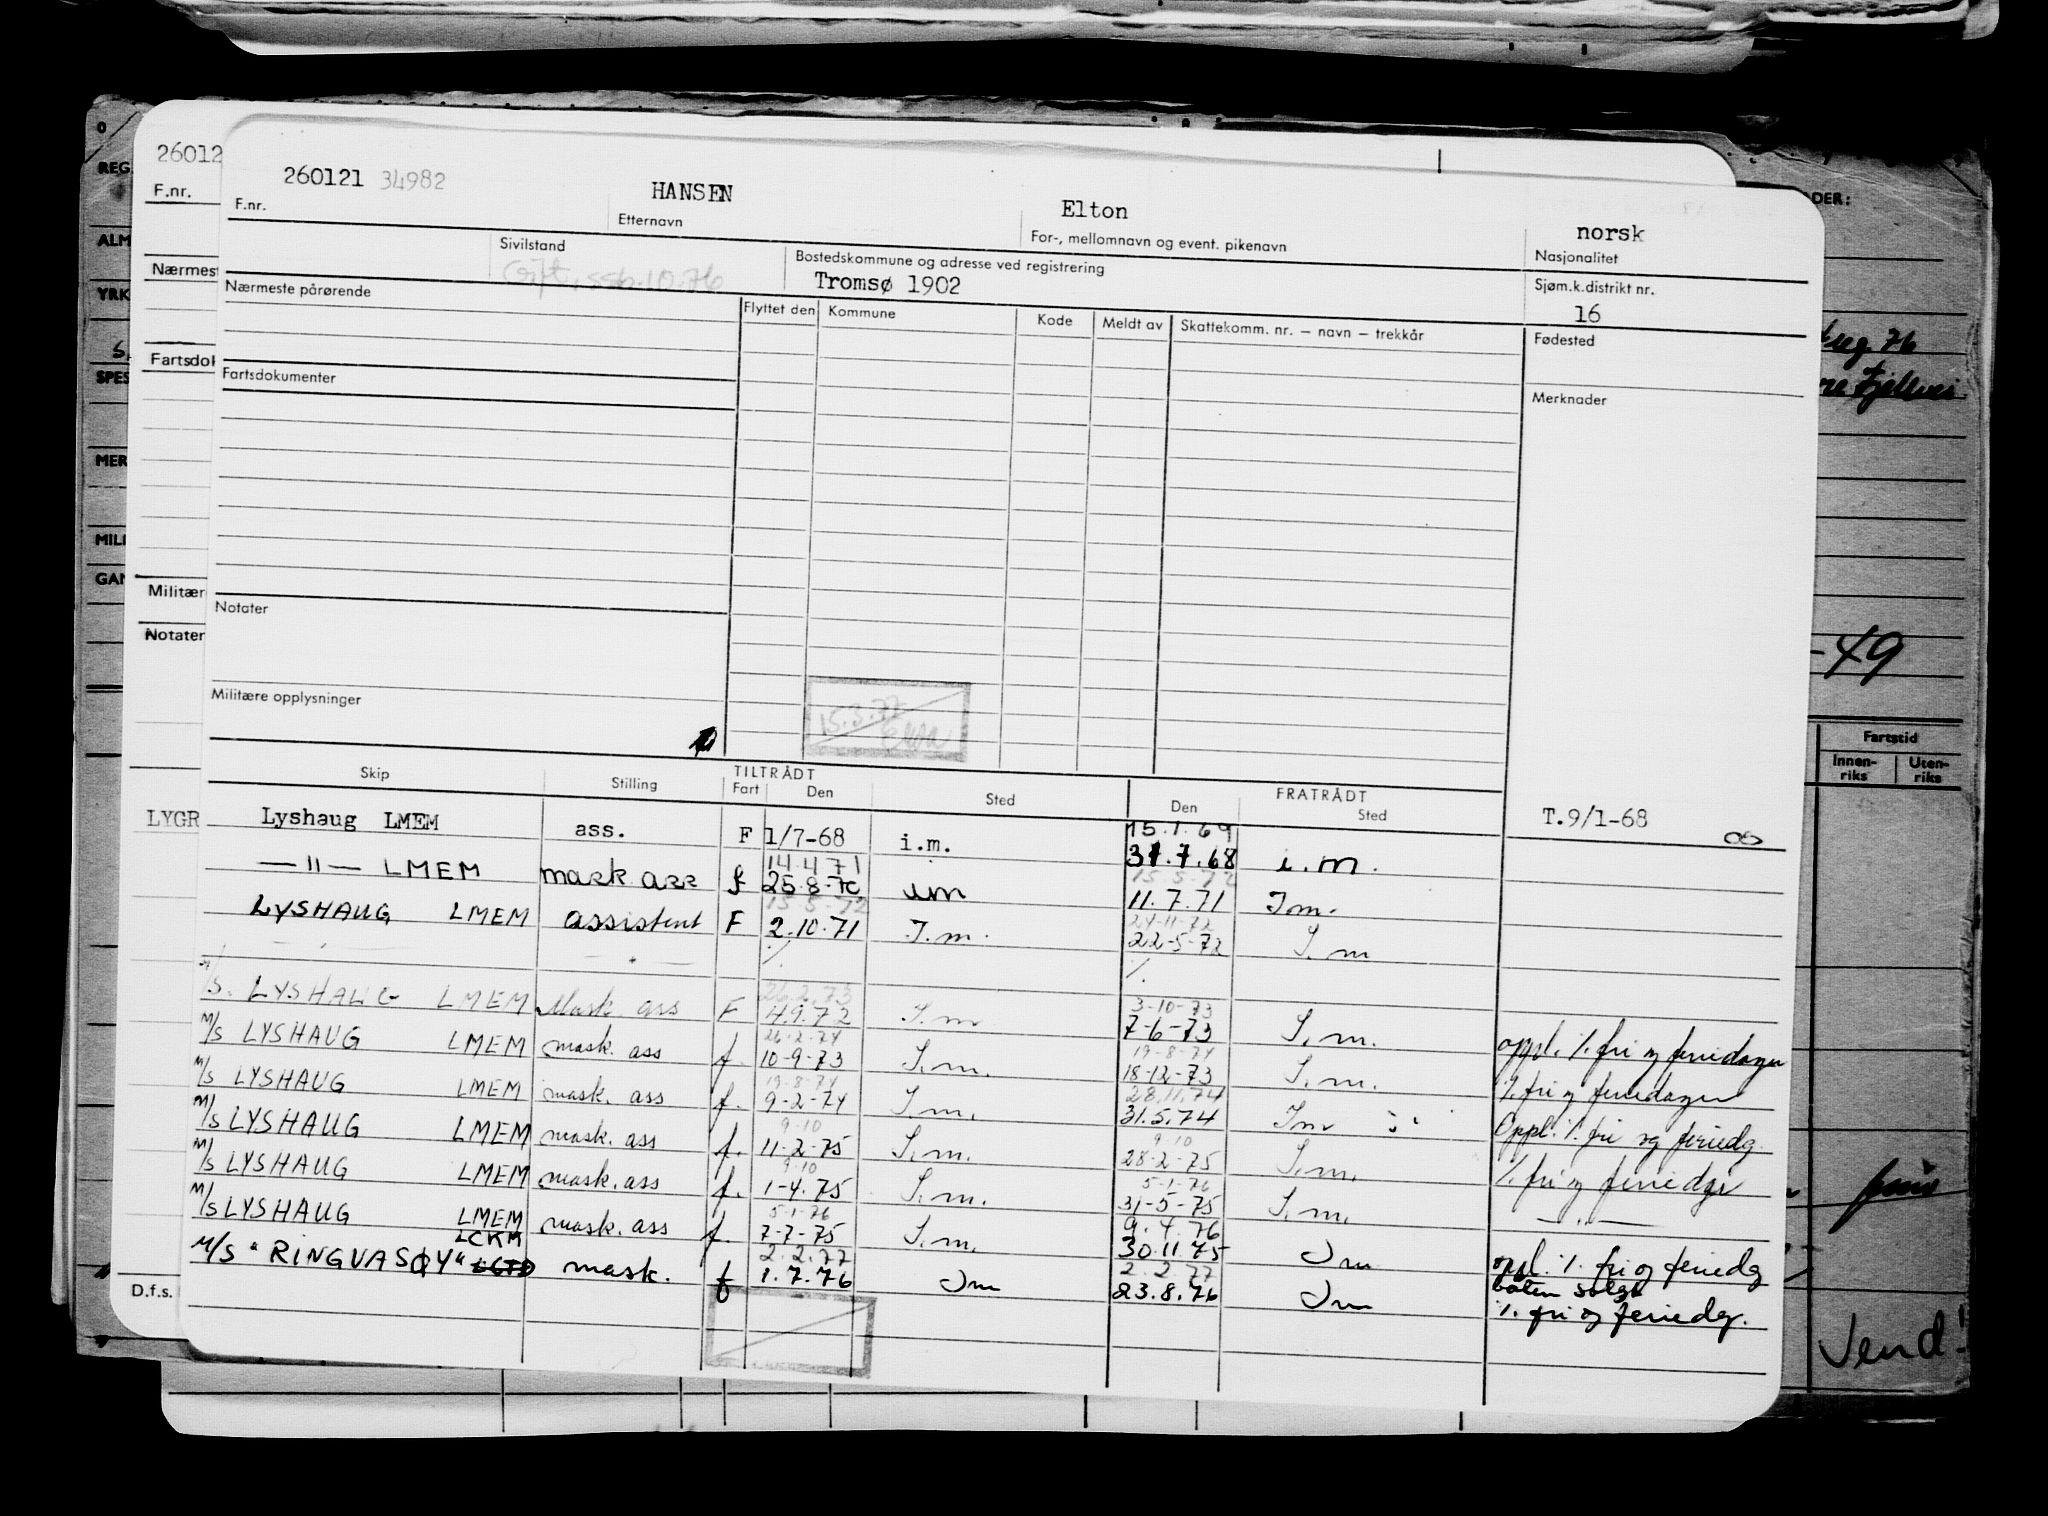 260121 34982 HANSEN Elton norsk
F.nr. Etternavn For-, mellomnavn og event. pikenavn Nasjonalitet
Sivilstand Bostedskommune og adresse ved registrering Sjøm.k.distrikt nr.
Gift, ssb.10.76 Tromsø 1902 16
Nærmeste pårørende Flyttet den Kommune Kode Meldt av Skattekomm. nr. — navn — trekkår Fødested
Fartsdokumenter Merknader
Notater
Militære opplysninger
15.3.77
TILTRÅDT FRATRÅDT
Skip Stilling Fart Den Sted Den Sted
T.9/1-68
15.1.69
Lyshaug LMEM ass. F 1/7-68 i.m. 31.7.68 i.m.
14.4.71 15.5.72
—"— LMEM mask ass f 25.8.70 im 11.7.71 Im.
15.5.72 24-11-72
LYSHAUG LMEM assistent F 2.10.71 I.m. 22-5-72 I.m
26.2.73 3-10-73
M/S. LYSHAUG LMEM Mask. ass F 4.9.72 I.m 7-6-73 I.m. oppl. %. fri og feriedager
26-2-74 19-8-74
M/S LYSHAUG LMEM mask. ass f. 10-9-73 I.m. 18-12-73 I.m. %. fri og feriedager
19-8-74 28.11.74
M/S LYSHAUG LMEM mask. ass f. 9-2-74 I.m. 31.5.74 Im Oppl. %. fri og feriedg.
9-10 9-10
M/S LYSHAUG LMEM mask. ass f. 11-2-75 I.m. 28-2-75 I.m. %. fri og feriedgr
9-10 5-1-76
M/S LYSHAUG LMEM mask. ass f. 1-4.75 I.m. 31-5-75 I.m. —"—
5-1-76 9.4.76
M/S LYSHAUG LMEM mask. ass f. 7-7-75 I.m. 30.11.75 Im oppl. %. fri og feriedg
LCKM 2.2.77 2.2.77 båten solgt
M/S "RINGVASØY" mask. f 1.7.76 Im 23.8.76 Im %. fri og feriedgr.
26012
F.nr.
Nærmest
Fartsdok
Militær
Notater
LYGR
D.f.s.
0
REG
ALM
YRK
SPES
MER
MILI
GAN
DER:
76
-49
Fartstid
Innen-riks Uten-riks
Vend!